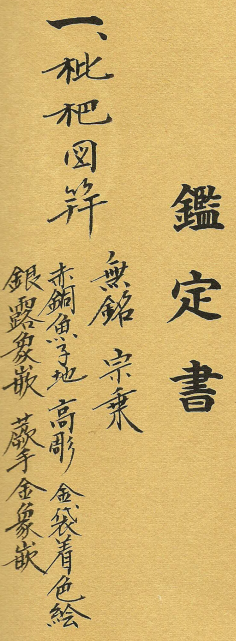 鑑定書
一、枇杷図笄
無銘 宗乗
赤銅魚子地 高彫 金袋着色絵
銀露象嵌 蕨手金象嵌